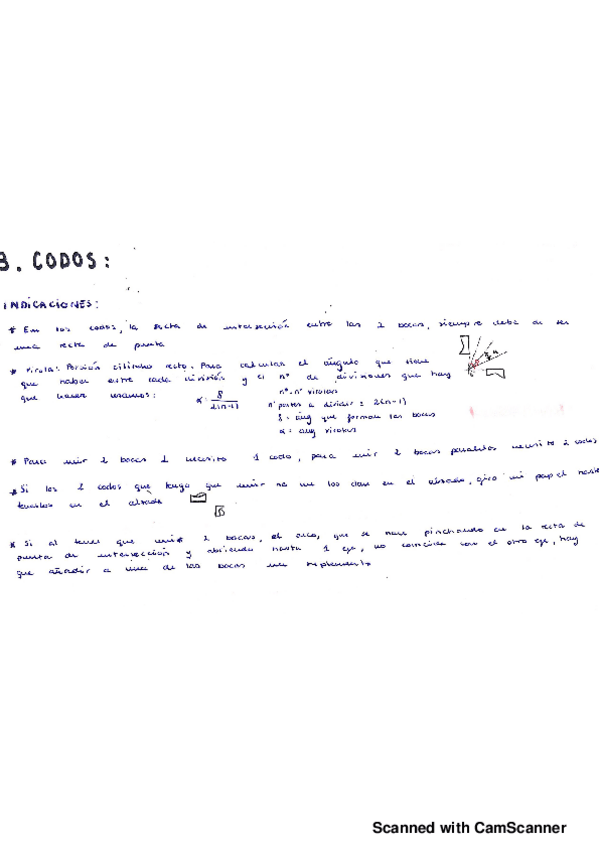 3. CODOS:
INDICACIONES:
* En los codos, la recta de intersección entre las 2 bocas, siempre debe de ser
una recta de punta
* Virola: Porción cilindro recto. Para calcular el ángulo que tiene
que haber entre cada división y el nº de divisiones que hay
que hacer usamos: α = δ / 2(n-1)
n = nº virolas
nº partes a dividir = 2(n-1)
δ = áng que forman las bocas
α = áng virolas
* Para unir 2 bocas ⊥ necesito 1 codo, para unir 2 bocas paralelas necesito 2 codos
* Si los 2 codos que tengo que unir no me los dan en el alzado, giro mi papel hasta
tenerlos en el alzado
* Si al tener que unir 2 bocas, el arco, que se hace pinchando en la recta de
punta de intersección y abriendo hasta 1 eje, no coincide con el otro eje, hay
que añadir a una de las bocas un suplemento
Scanned with CamScanner